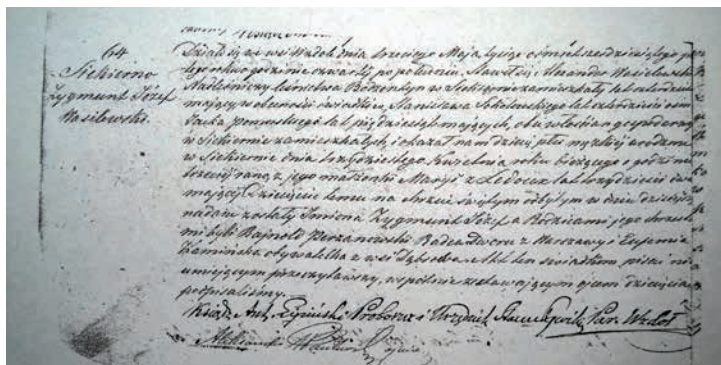 64
Siekierno
Zygmunt Józef
Wasilewski.
Działo się we wsi Wzdole dnia trzeciego Maja tysiąc ośmset sześdziesiątego
o godzinie czwartéj po południu. Stawił się Alexander Wasilewski
Nadleśniczy leśnictwa Bodzentyn w Siekiernie zamieszkały lat
mający w obecności świadków, Stanisława Sokołowskiego lat czterdzieści ośm
Jacka lat pięćdziesiąt mających, obu włościan gospodarzy
w Siekiernie zamieszkałych, i okazał nam dziecię płci męzkiéj urodzone
w Siekiernie dnia trzydziestego Kwietnia roku bieżącego o godzinie
trzeciéj rano, z jego małżonki Maryi z Ledoux lat trzydzieści dwa
mającéj. Dziecięciu temu na chrzcie świętym odbytym w dniu dzisiejszym
nadane zostały Imiona Zygmunt Józef a Rodzicami jego chrzestnemi
byli Rajnold Perzanowski Radca Dworu z Warszawy i Eufemia
Kamińska obywatelka z wsi Dąbrowa. Akt ten świadkom pisać nie
umiejącym przeczytawszy, wspólnie z stawającym ojcem dziecięcia
podpisaliśmy.
Ksiądz Ant. Proboszcz i Urzędnik Stanu Cywil: Par. Wzdół